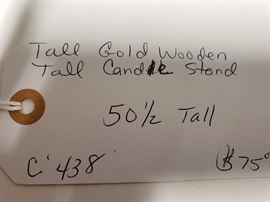 Tall Gold Wooden
Tall Candle Stand
50 1/2 Tall
C' 438
$75⁰